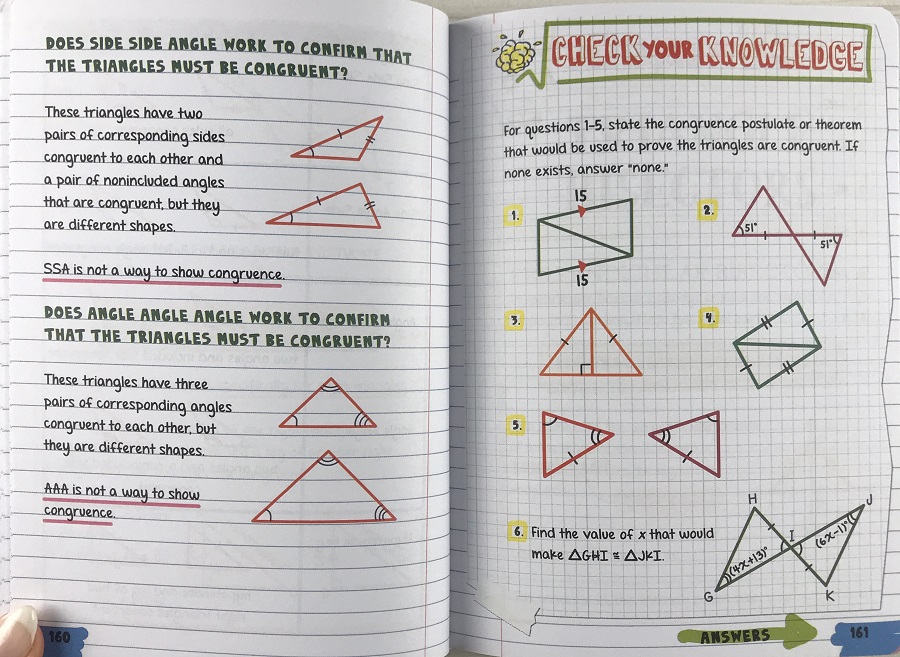 DOES SIDE SIDE ANGLE WORK TO CONFIRM THAT
THE TRIANGLES MUST BE CONGRUENT?
These triangles have two
pairs of corresponding sides
congruent to each other and
a pair of nonincluded angles
that are congruent, but they
are different shapes.
SSA is not a way to show congruence.
DOES ANGLE ANGLE ANGLE WORK TO CONFIRM
THAT THE TRIANGLES MUST BE CONGRUENT?
These triangles have three
pairs of corresponding angles
congruent to each other, but
they are different shapes.
AAA is not a way to show
congruence.
160
CHECK YOUR KNOWLEDGE
For questions 1-5, state the congruence postulate or theorem
that would be used to prove the triangles are congruent. If
none exists, answer "none."
1.
15
15
2.
51°
51°
3.
4.
5.
6. Find the value of x that would
make △GHI ≅ △JKI.
H
J
I
(6x-1)°
(4x+13)°
G
K
ANSWERS
161